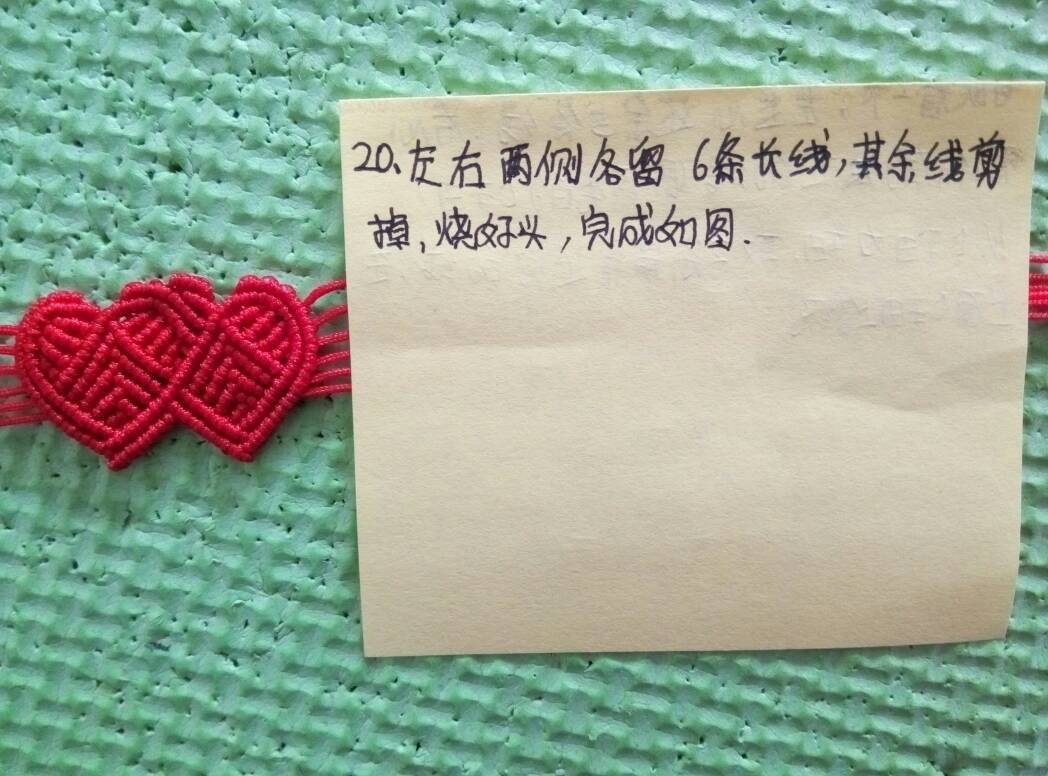 20、左右两侧各留 6条长线,其余线剪
掉,烧好头,完成如图.